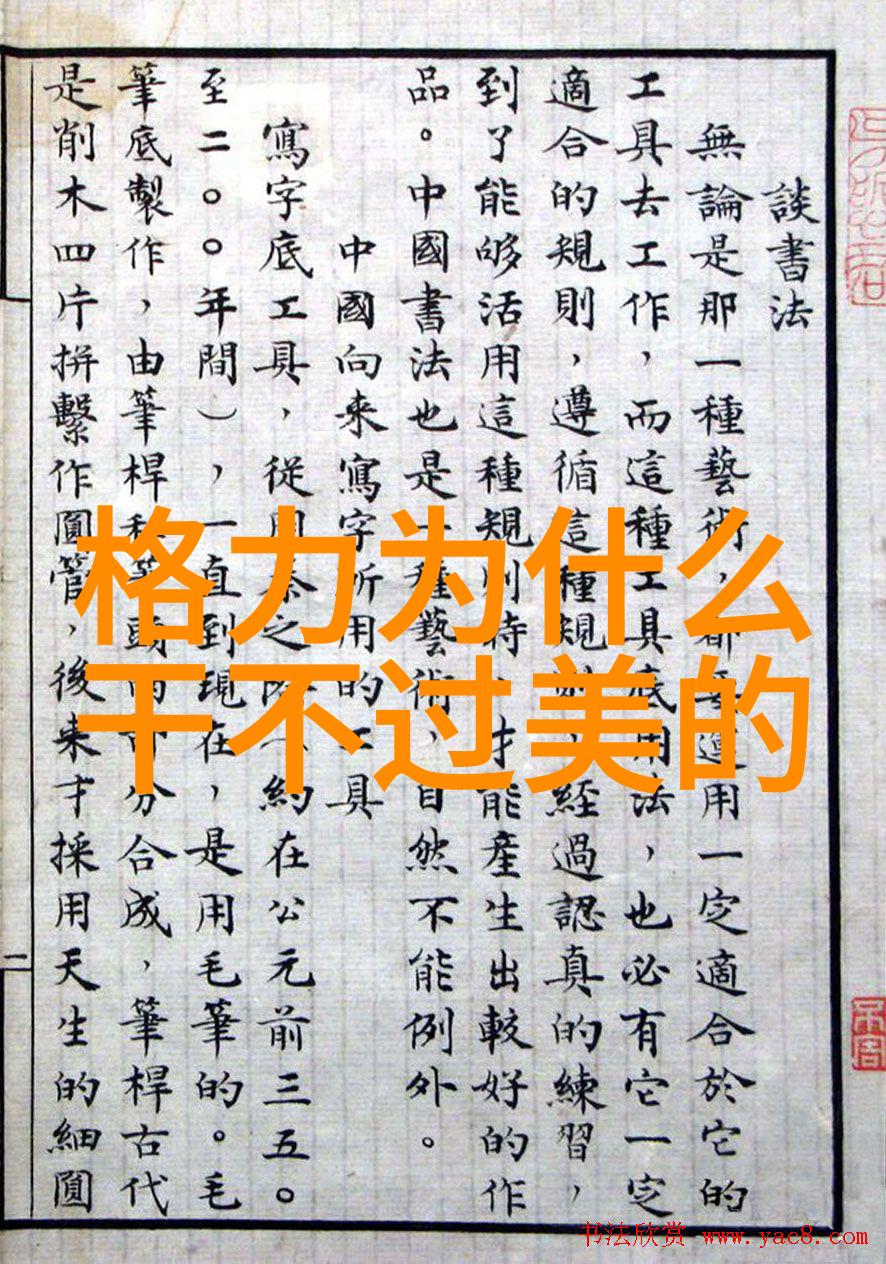 談書法
無論是那一種藝術，都要運用一定適合於它的
工具去工作，而這種工具底用法，也必有它一定
適合的規則，遵循這種規則，經過認真的練習，
到了能够活用這種規則時，才能產生出較好的作
品。中國書法也是一種藝術，自然不能例外。
中國向来寫字所用的工具
寫字底工具，從周秦之際（約在公元前三五〇
至二〇〇年間），一直到現在，是用毛筆的。毛
筆底製作，由筆桿和筆頭兩部分合成，筆桿古代
是削木四片拼繫作圓管，後来才採用天生的細圓
二
格力为什么
干不过美的
书法欣赏 www.yac8.com